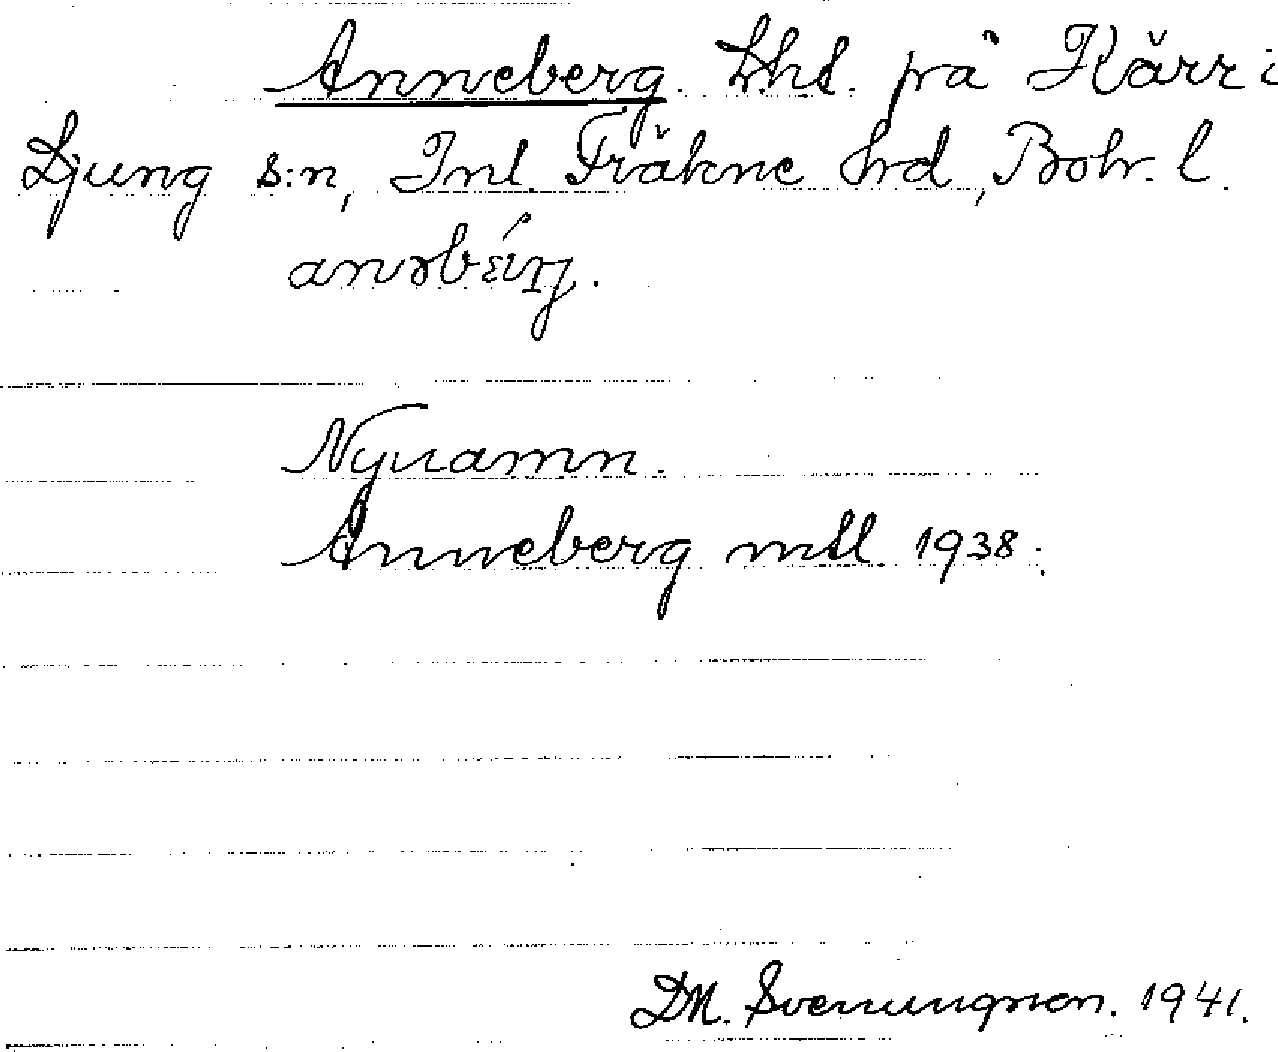 Anneberg. Lht. på Kärr i
Ljung s:n, Inl. Fräkne hrd, Boh. l.
Nynamn.
Anneberg mtl. 1938.
DM. Svenungsson. 1941.